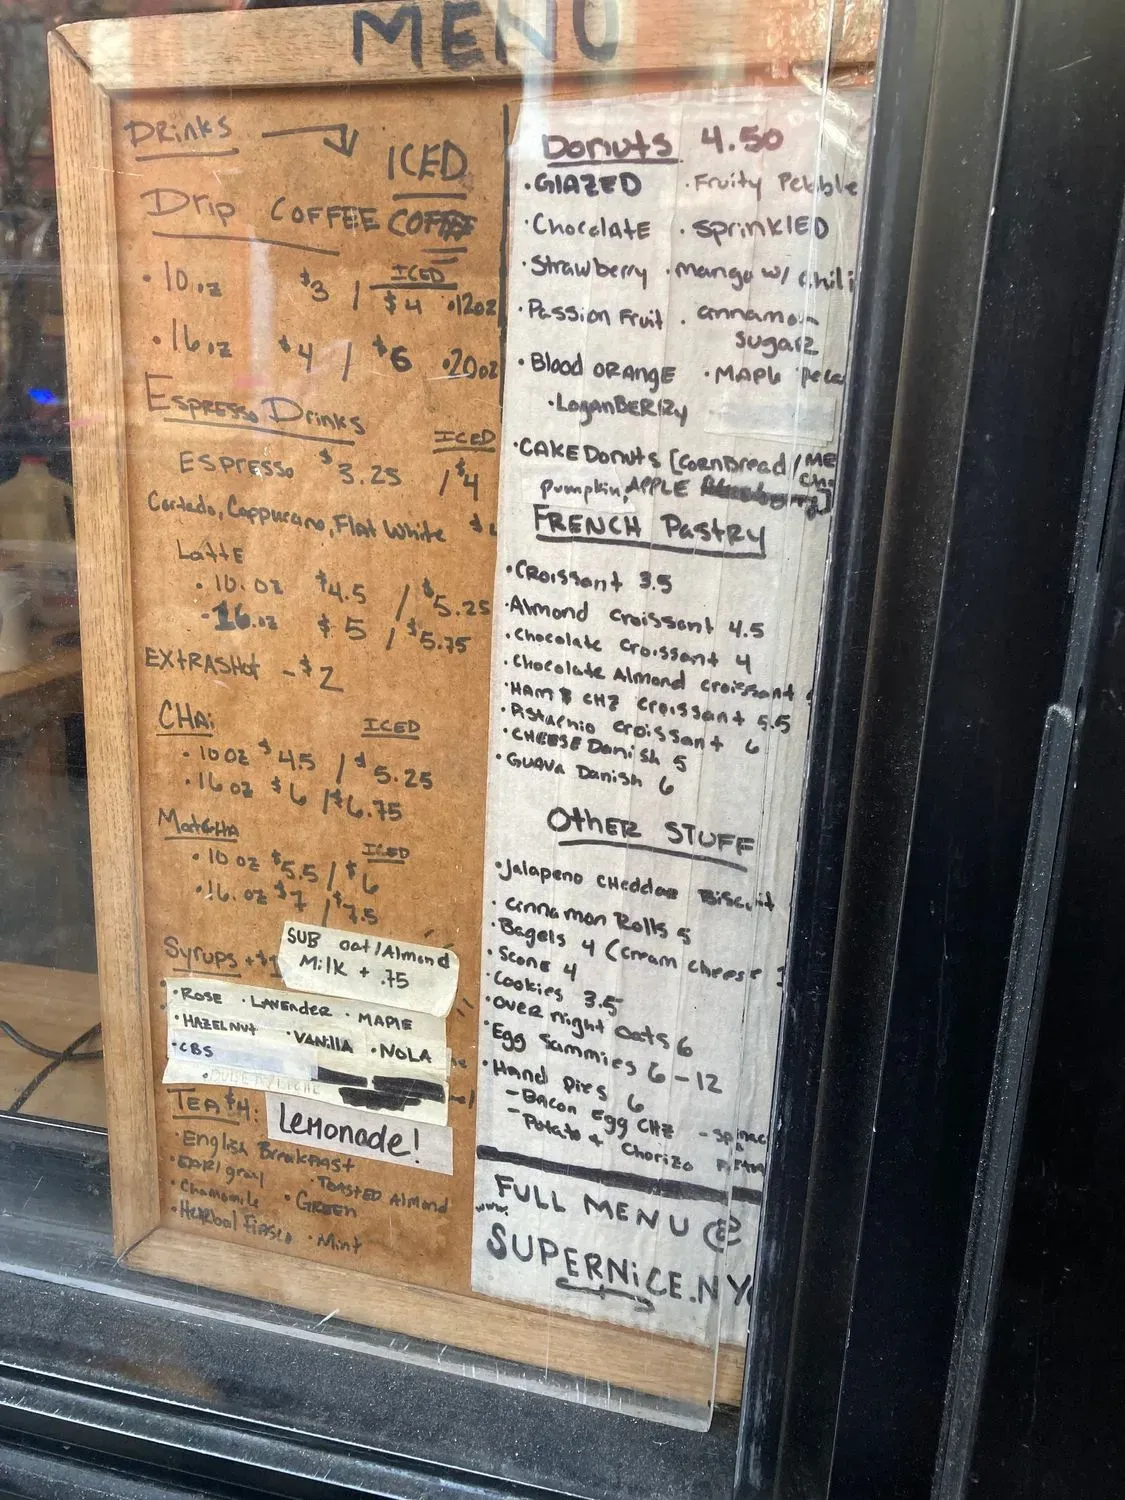 MENU
DRINKS
ICED
Drip COFFEE COFFEE
ICED
• 10.oz $3 / $4 •12oz
• 16oz $4 / $6 •20oz
ESPRESSO DRINKS
ICED
ESPRESSO $3.25 / $4
Cortado, Cappuccino, Flat White $
LATTE
• 10.oz $4.5 / $5.25
• 16.oz $5 / $5.75
EXTRA SHOT - $2
CHAi
ICED
• 10 oz $4.5 / $5.25
• 16 oz $6 / $6.75
MATCHA
ICED
• 10 oz $5.5 / $6
• 16.oz $7 / $7.5
Syrups +$1
SUB oat/Almond
Milk + .75
• ROSE • LAVENDER • MAPLE
• HAZELNUT • VANILLA • NOLA
• CBS
TEA $4:
LEMONADE!
• English Breakfast
• EARl gray • TOASTED Almond
• Chamomile • GREEN
• Herbal Fiasco • Mint
Donuts 4.50
• GlAZED • Fruity Pebble
• ChocolatE • SprinklED
• Strawberry • mango w/ chili
• Passion Fruit • cinnamon
sugar
• Blood ORANGE • MAPLE peca
• LoganBERRy
• CAKE Donuts [CornBread /
pumpkin, APPLE
FRENCH PastRy
• CRoissant 3.5
• Almond croissant 4.5
• Chocolate croissant 4
• Chocolate Almond croissant
• HAM & CHZ croissant 5.5
• Pistachio croissant 6
• CHEESE Danish 5
• GUAVA Danish 6
OtHER STUFF
• Jalapeno CHeddar Biscuit
• cinnamon Rolls 5
• Bagels 4 (cream cheese
• Scone 4
• Cookies 3.5
• over night oats 6
• Egg Sammies 6 - 12
• Hand pies 6
- Bacon Egg CHZ
- Potato + Chorizo
FULL MENU @
www.
SUPERNiCE.NY